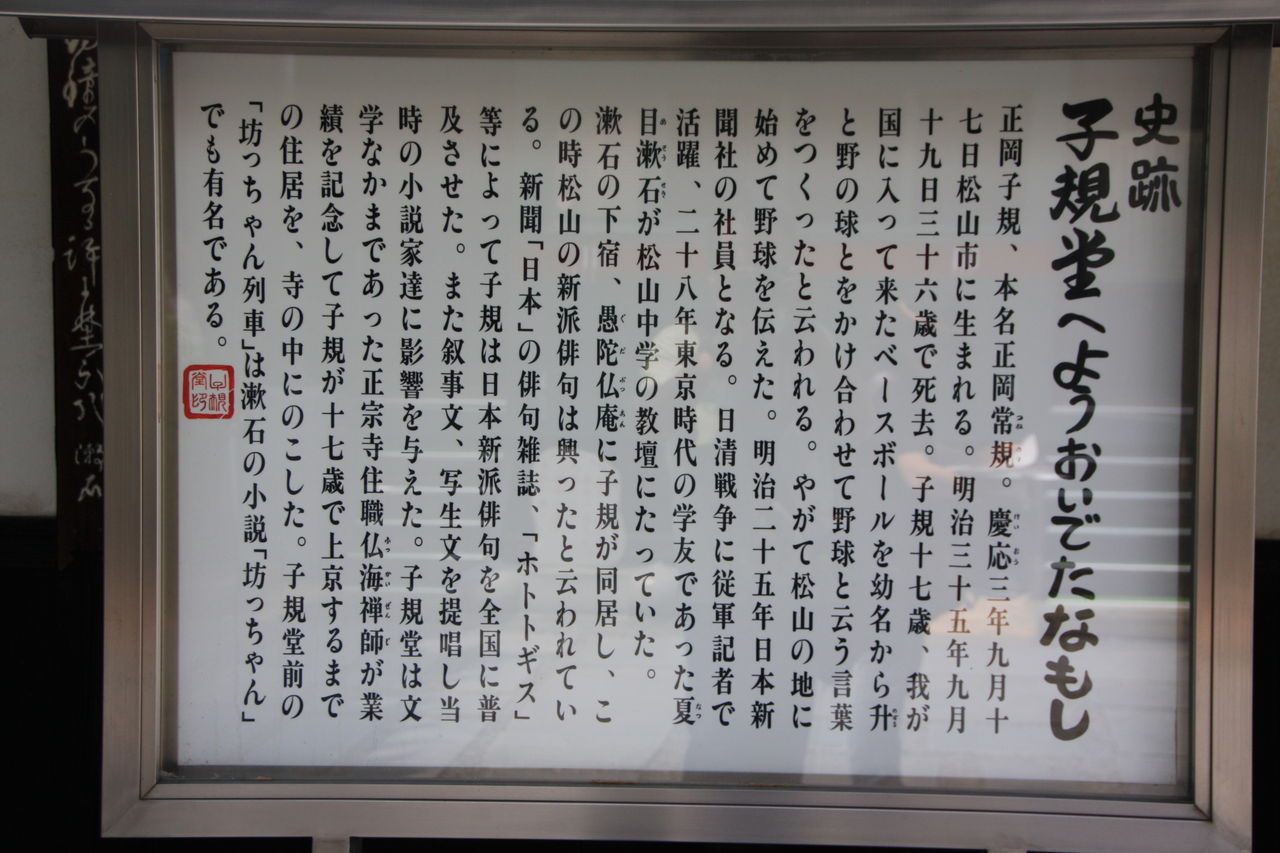 史跡
子規堂へようおいでたなもし
正岡子規、本名正岡常規。慶応三年九月十
七日松山市に生まれる。明治三十五年九月
十九日三十六歳で死去。子規十七歳、我が
国に入って来たベースボールを幼名から升
と野の球とをかけ合わせて野球と云う言葉
をつくったと云われる。やがて松山の地に
始めて野球を伝えた。明治二十五年日本新
聞社の社員となる。日清戦争に従軍記者で
活躍、二十八年東京時代の学友であった夏
目漱石が松山中学の教壇にたっていた。
漱石の下宿、愚陀仏庵に子規が同居し、こ
の時松山の新派俳句は興ったと云われてい
る。新聞「日本」の俳句雑誌、「ホトトギス」
等によって子規は日本新派俳句を全国に普
及させた。また叙事文、写生文を提唱し当
時の小説家達に影響を与えた。子規堂は文
学なかまであった正宗寺住職仏海禅師が業
績を記念して子規が十七歳で上京するまで
の住居を、寺の中にのこした。子規堂前の
「坊っちゃん列車」は漱石の小説「坊っちゃん」
でも有名である。
子規堂印
漱石